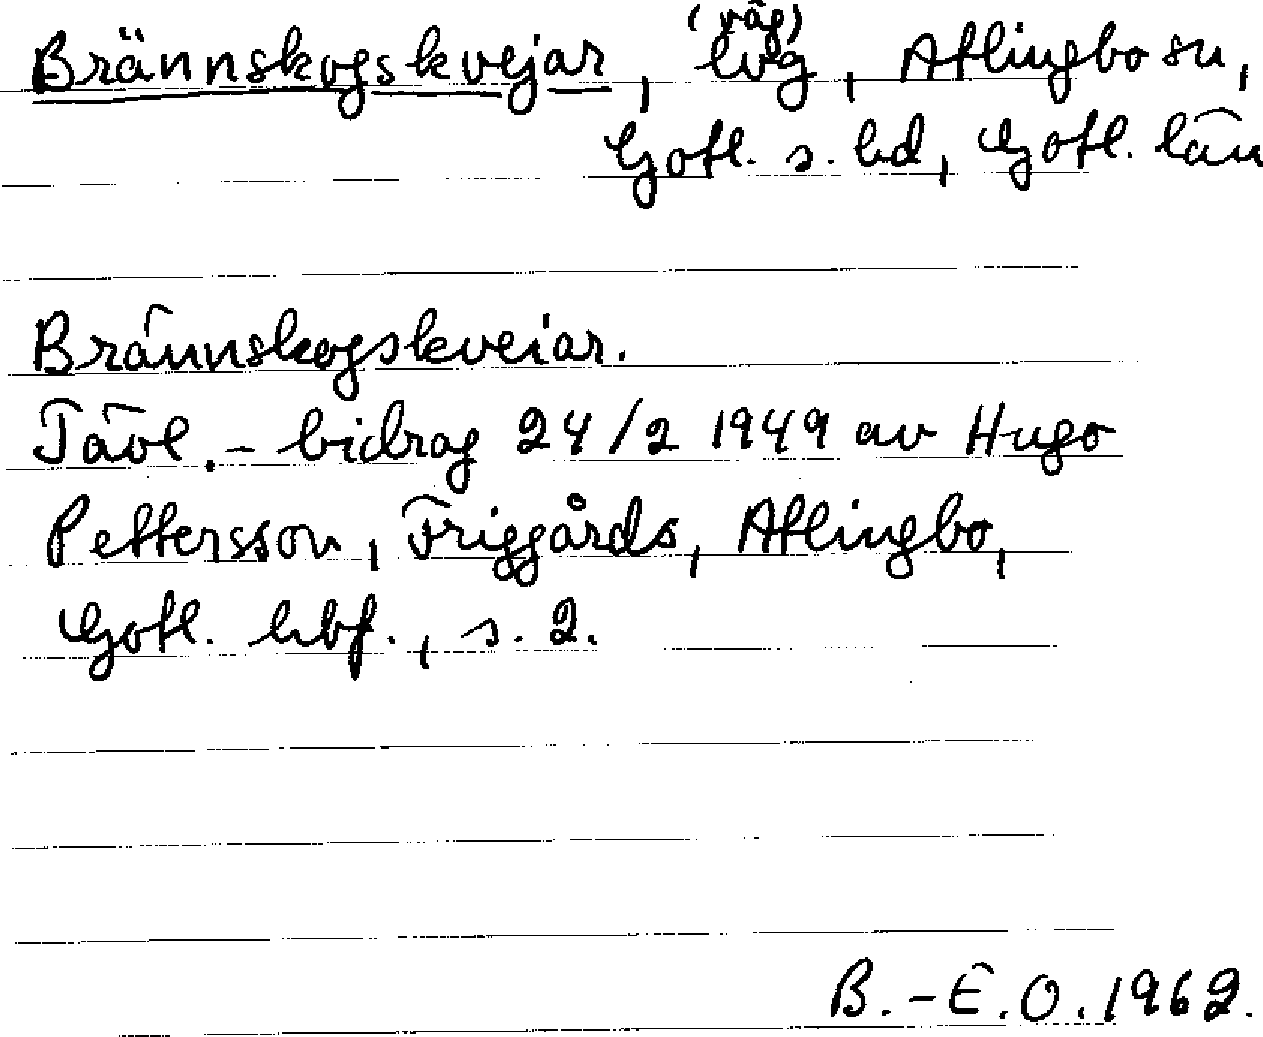 (väg)
Brännskogskvejar, lvg, Atlingbo sn,
Gotl. s. hd, Gotl. län
Brännskogskveiar.
Tävl. - bidrag 24/2 1949 av Hugo
Pettersson, Friggårds, Atlingbo,
Gotl. hbf., s. 2.
B.-E.O. 1962.